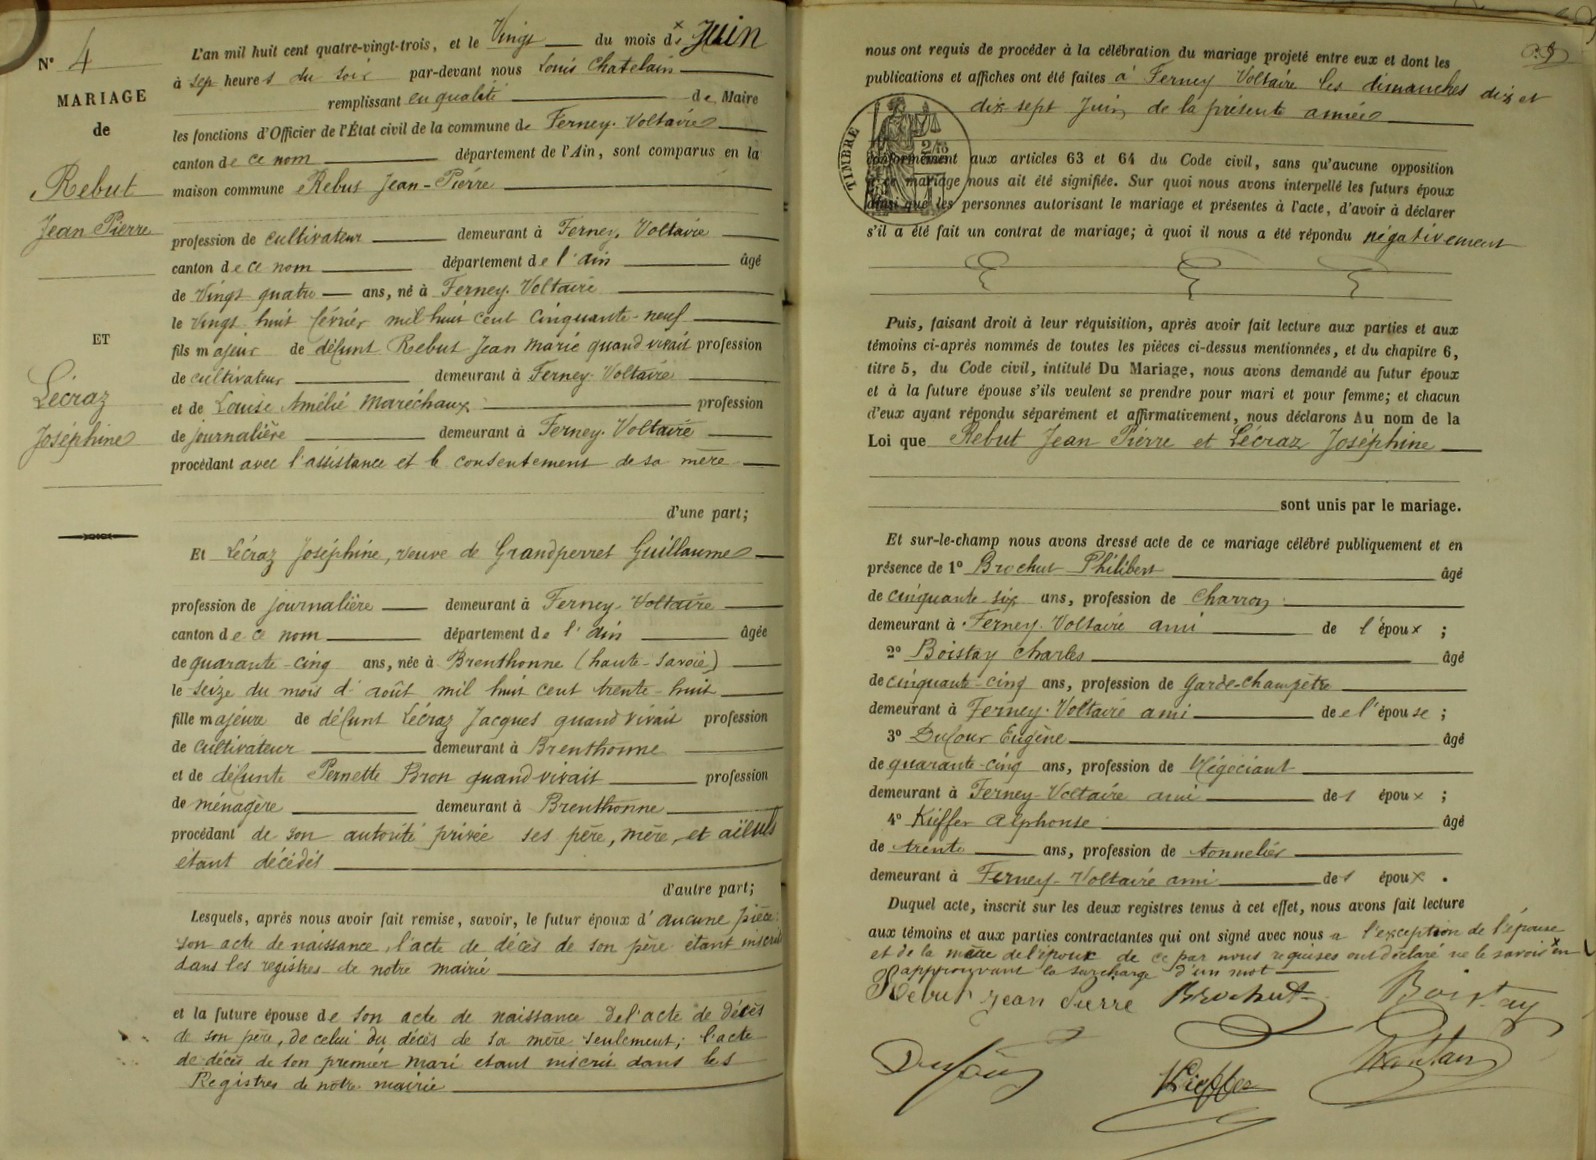 N° 4
MARIAGE
de
Rebut
Jean Pierre
ET
Lécraz
Joséphine
L'an mil huit cent quatre-vingt-trois, et le Vingt du mois de Juin
à sept heures du soir par-devant nous Louis Chatelain
remplissant en qualité de Maire
les fonctions d'Officier de l'État civil de la commune de Ferney-Voltaire
canton de ce nom département de l'Ain, sont comparus en la
maison commune Rebut Jean-Pierre
profession de cultivateur demeurant à Ferney-Voltaire
canton de ce nom département de l'ain âgé
de Vingt quatre ans, né à Ferney-Voltaire
le vingt huit février mil huit cent cinquante-neuf
fils majeur de défunt Rebut Jean Marie quand vivait profession
de cultivateur demeurant à Ferney-Voltaire
et de Louise Amélie Maréchaux profession
de journalière demeurant à Ferney-Voltaire
procédant avec l'assistance et le consentement de sa mère
d'une part;
Et Lécraz Joséphine, veuve de Grandperret Guillaume
profession de journalière demeurant à Ferney-Voltaire
canton de ce nom département de l'ain âgée
de quarante-cinq ans, née à Brenthonne (haute-Savoie)
le seize du mois d'août mil huit cent trente-huit
fille majeure de défunt Lécraz Jacques quand vivait profession
de cultivateur demeurant à Brenthonne
et de défunte Pernette Bron quand vivait profession
de ménagère demeurant à Brenthonne
procédant de son autorité privée ses père, mère, et aïeuls
étant décédés
d'autre part;
Lesquels, après nous avoir fait remise, savoir, le futur époux d'aucune pièce
son acte de naissance, l'acte de décès de son père étant inscrit
dans les registres de notre mairie
et la future épouse de son acte de naissance de l'acte de décès
de son père, de celui du décès de sa mère seulement; l'acte
de décès de son premier mari étant inscrit dans les
Registres de notre mairie
nous ont requis de procéder à la célébration du mariage projeté entre eux et dont les
publications et affiches ont été faites à Ferney Voltaire les dimanches dix et
dix-sept Juin de la présente année
TIMBRE
conformément aux articles 63 et 64 du Code civil, sans qu'aucune opposition
à ce mariage nous ait été signifiée. Sur quoi nous avons interpellé les futurs époux
ainsi que les personnes autorisant le mariage et présentes à l'acte, d'avoir à déclarer
s'il a été fait un contrat de mariage; à quoi il nous a été répondu négativement
Puis, faisant droit à leur réquisition, après avoir fait lecture aux parties et aux
témoins ci-après nommés de toutes les pièces ci-dessus mentionnées, et du chapitre 6,
titre 5, du Code civil, intitulé Du Mariage, nous avons demandé au futur époux
et à la future épouse s'ils veulent se prendre pour mari et pour femme; et chacun
d'eux ayant répondu séparément et affirmativement, nous déclarons Au nom de la
Loi que Rebut Jean Pierre et Lécraz Joséphine
sont unis par le mariage.
Et sur-le-champ nous avons dressé acte de ce mariage célébré publiquement et en
présence de 1° Brochut Philibert âgé
de cinquante-six ans, profession de charron
demeurant à Ferney-Voltaire ami de l'époux ;
2° Boistay Charles âgé
de cinquante-cinq ans, profession de garde-champêtre
demeurant à Ferney-Voltaire ami de e l'épouse ;
3° Dufour Eugène âgé
de quarante-cinq ans, profession de Négociant
demeurant à Ferney-Voltaire ami des époux ;
4° Kieffer Alphonse âgé
de trente ans, profession de tonnelier
demeurant à Ferney-Voltaire ami des époux .
Duquel acte, inscrit sur les deux registres tenus à cet effet, nous avons fait lecture
aux témoins et aux parties contractantes qui ont signé avec nous à l'exception de l'épouse
et de la mère de l'époux de ce par nous requises ont déclaré ne le savoir en
approuvant la surcharge d'un mot
Rebut Jean Pierre Brochut Boistay
Dufour Kieffer